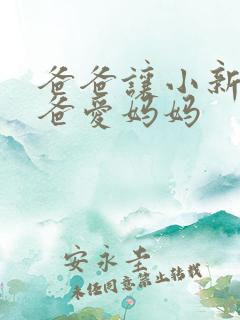 爸爸讓小新
爸愛妈妈
安永圭
未经同意禁止转载